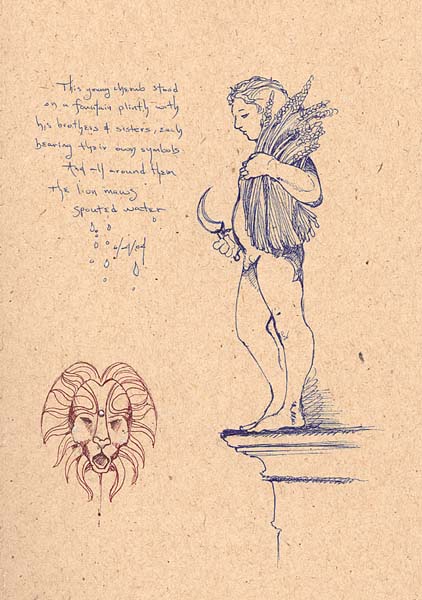 This young cherub stood
on a fountain plinth with
his brothers & sisters, each
bearing their own symbols
And all around them
The lion maws
spouted water